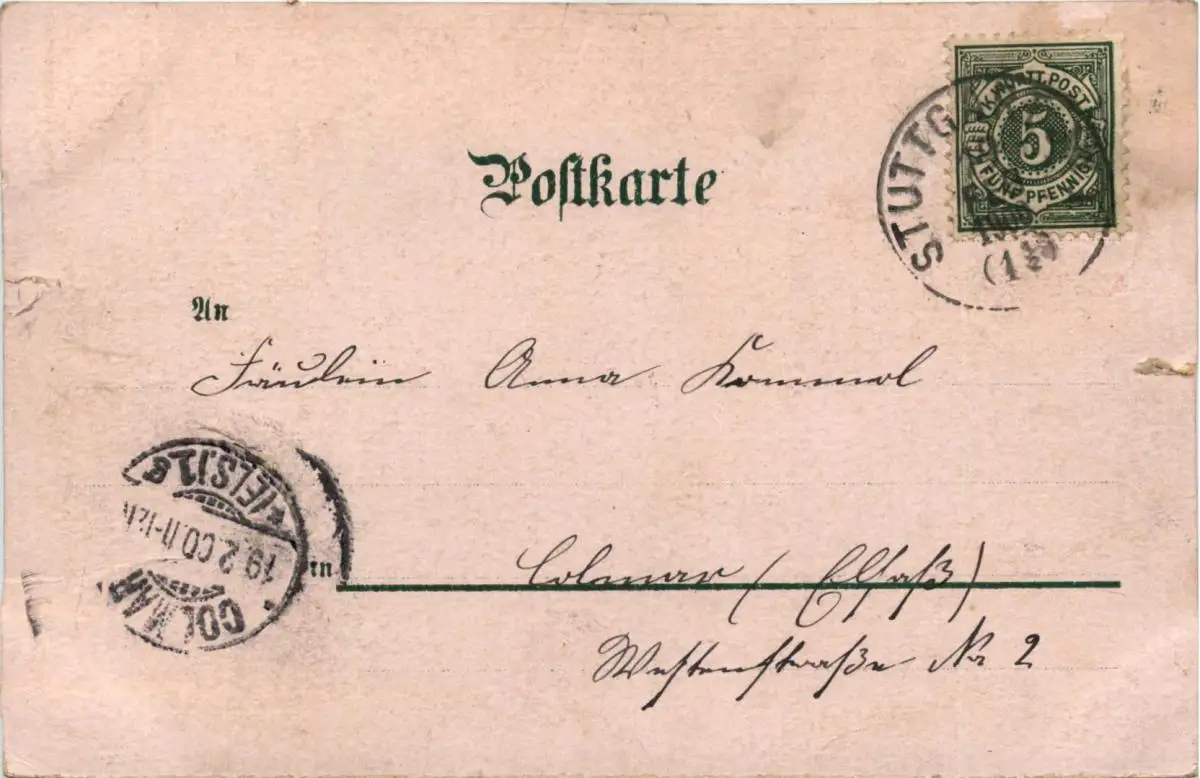 K. WÜRTT. POST
5
FÜNF PFENNIG
STUTTG
(1
Postkarte
An
Fräulein Anna
(ELS.) 1
19.2.00.11-12
COLMAR
in
Colmar (Elsaß)
Westenstraße No 2